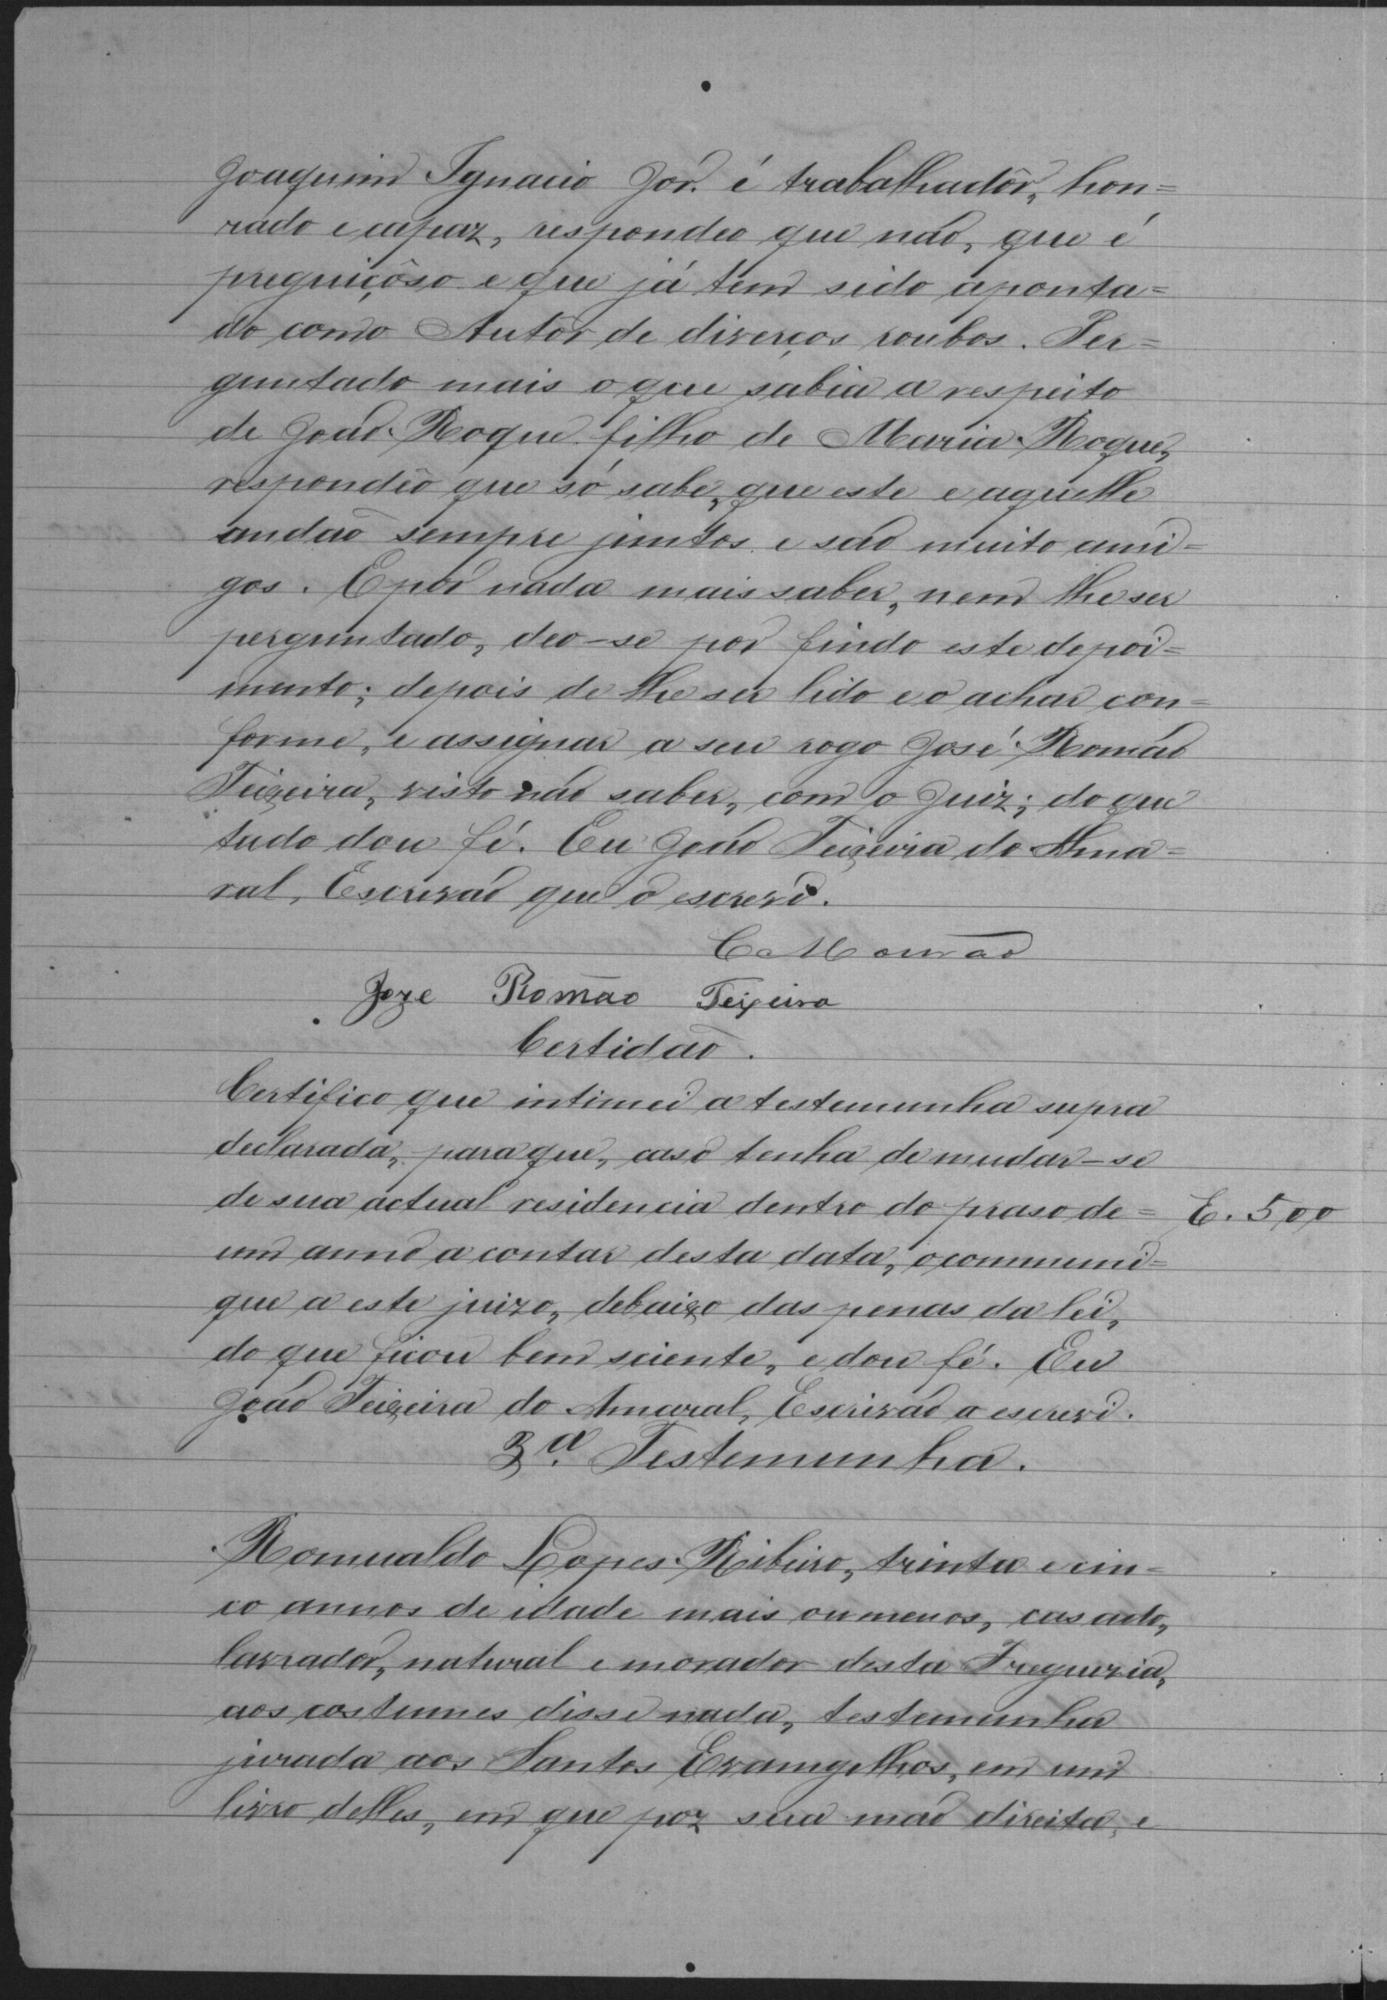 Joaquim Ignacio Jór. é trabalhadôr, hon=
rado e capaz, respondeo que não, que é
preguiçôso e que já tem sido aponta=
do como Autôr de diverços roubos. Per=
guntado mais o que sabia a respeito
de João Roque filho de Maria Roque,
respondêo que só sabe, que este e aquelle
andão sempre juntos e são muito ami=
gos. E por nada mais saber, nem lhe ser
perguntado, deo-se por findo este depoi=
mento; depois de lhe ser lido e o achar con=
forme, e assignar a seu rogo José Romão
Teixeira, visto não saber, com o Juiz; do que
tudo dou fé. Eu João Teixeira do Ama=
ral, Escrivão que o escrevi.
Joze Romão Teixeira
Certidão.
Certifico que intimei a testemunha supra
declarada, para que, caso tenha de mudar-se
de sua actual residencia dentro do praso de= E. 500
um anno a contar desta data, o communi=
que a este juizo, debaixo das penas da lei,
do que ficou bem sciente, e dou fé. Eu
João Teixeira do Amaral, Escrivão o escrevi.
3ª. Testemunha.
Romualdo Lopes Ribeiro, trinta e cin=
co annos de idade mais ou menos, casado,
lavrador, natural e morador desta Freguezia,
aos costumes disse nada, testemunha
jurada aos Santos Evangelhos, em um
livro delles, em que poz sua mão direita, e